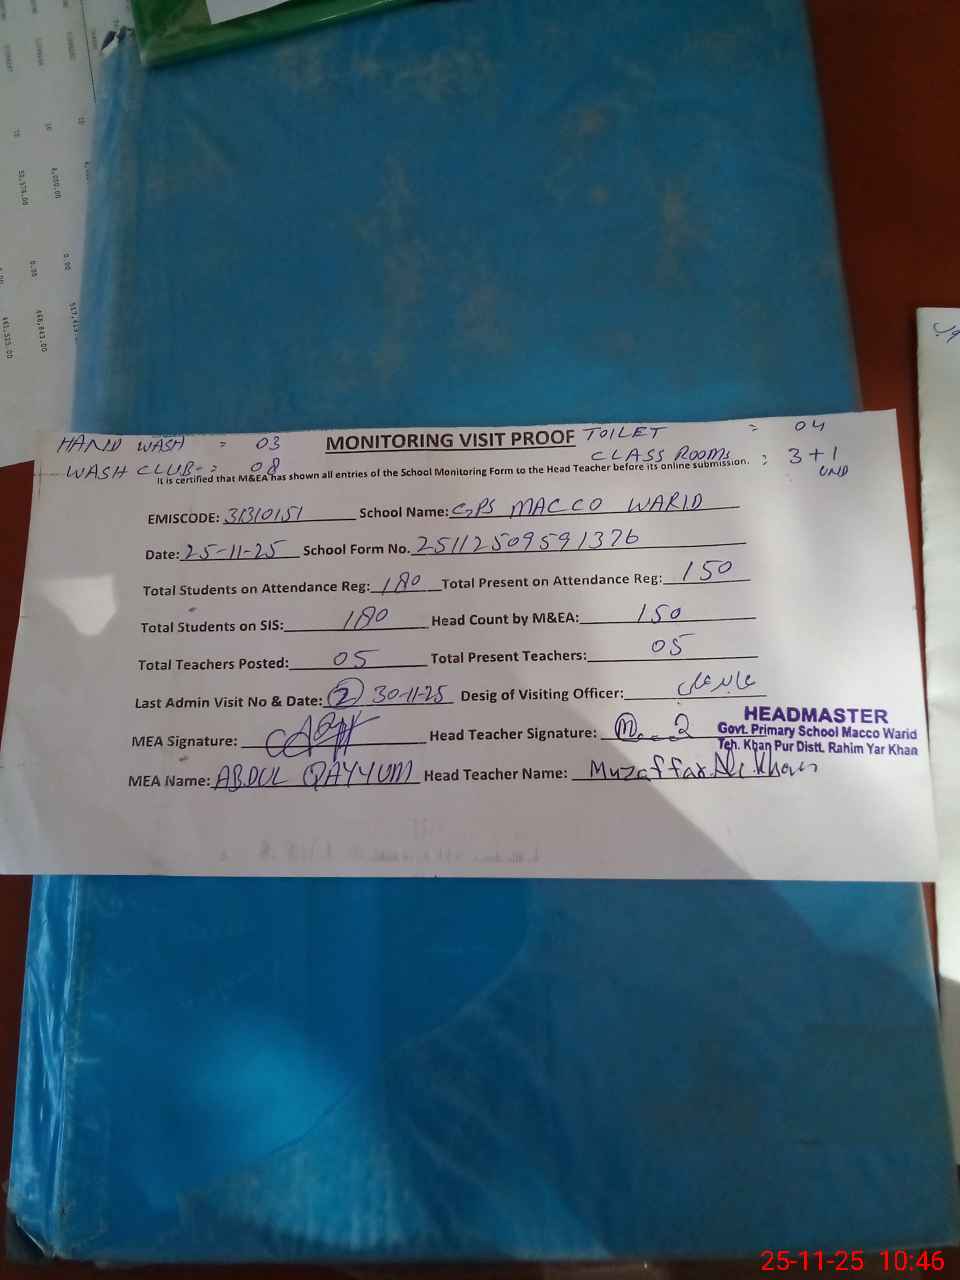 HAND WASH = 03 MONITORING VISIT PROOF TOILET = 04
WASH CLUB = 08 CLASS ROOMS : 3+1
It is certified that M&EA has shown all entries of the School Monitoring Form to the Head Teacher before its online submission.
EMISCODE: 31310151 School Name: GPS MACCO WARID
Date: 25-11-25 School Form No. 25112509591376
Total Students on Attendance Reg: 180 Total Present on Attendance Reg: 150
Total Students on SIS: 180 Head Count by M&EA: 150
Total Teachers Posted: 05 Total Present Teachers: 05
Last Admin Visit No & Date: (2) 30-11-25 Desig of Visiting Officer:
MEA Signature: Head Teacher Signature:
HEADMASTER
Govt. Primary School Macco Warid
Teh. Khan Pur Distt. Rahim Yar Khan
MEA Name: ABDUL QAYYUM Head Teacher Name: Muzaffar Ali Khan
25-11-25 10:46